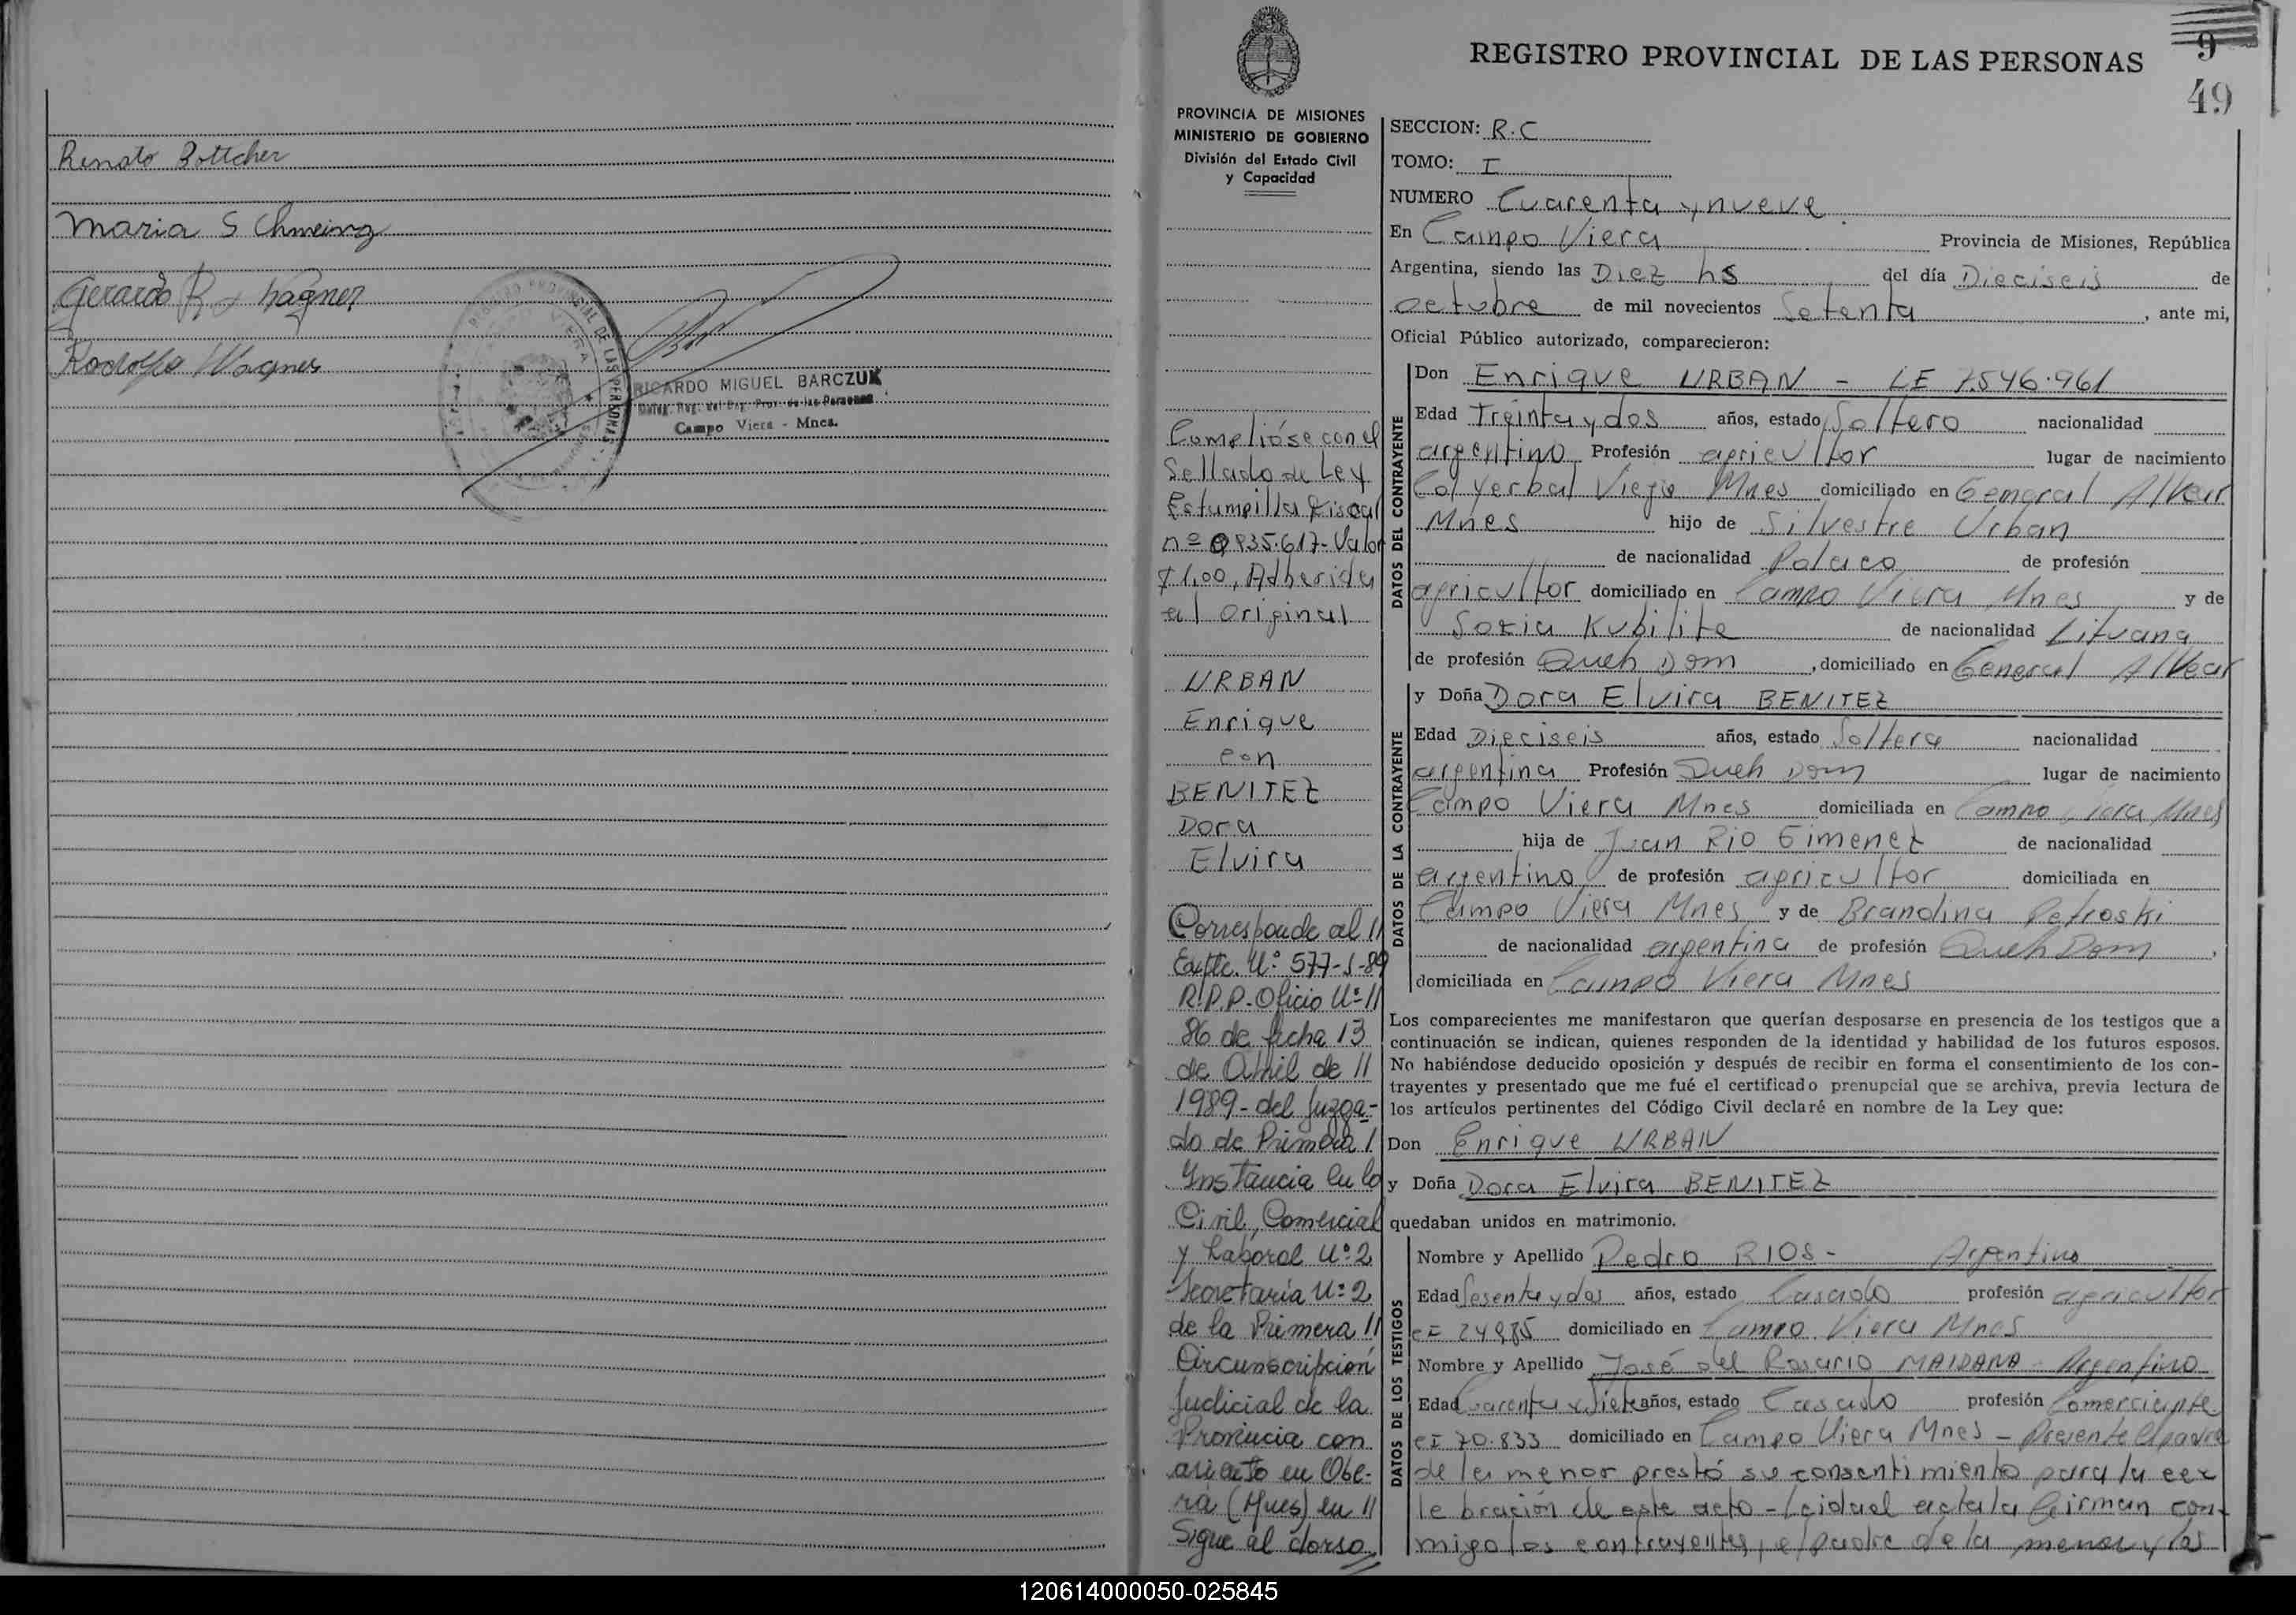 Renato Bottcher
Maria S Chmeing
Gerardo R. Wagner
Rodolfo Wagner
RICARDO MIGUEL BARCZUK
Campo Viera - Mnes.
REGISTRO PROVINCIAL DE LAS PERSONAS
9
49
PROVINCIA DE MISIONES
MINISTERIO DE GOBIERNO
División del Estado Civil
y Capacidad
Cumplióse con el
Sellado de Ley
Estampilla Fiscal
nº 0935.617- Valor
$ 1,00, Adherida
al original
URBAN
Enrique
con
BENITEZ
Dora
Elvira
Corresponde al //
Expte. Nº 577-S-89
R.P.P. Oficio Nº //
86 de fecha 13
de Abril de //
1989- del Juzga-
do de Primera /
Instancia en lo
Civil, Comercial
y Laboral Nº 2
Secretaría Nº 2
de la Primera //
Circunscripción
Judicial de la
Provincia con
asiento en Obe-
rá (Mnes) en //
Sigue al dorso //
SECCION: R.C
TOMO: I
NUMERO Cuarenta y nueve
En Campo Viera Provincia de Misiones, República
Argentina, siendo las Diez hs del día Dieciseis de
octubre de mil novecientos Setenta, ante mi,
Oficial Público autorizado, comparecieron:
DATOS DEL CONTRAYENTE
Don Enrique URBAN - LE 7.546.961
Edad Treinta y dos años, estado Soltero nacionalidad
argentino Profesión agricultor lugar de nacimiento
Col Yerbal Viejo Mnes domiciliado en General Alvear
Mnes hijo de Silvestre Urban
de nacionalidad Polaco de profesión
agricultor domiciliado en Campo Viera Mnes y de
Sofia Kubilite de nacionalidad Lituana
de profesión Queh Dom, domiciliado en General Alvear
DATOS DE LA CONTRAYENTE
y Doña Dora Elvira BENITEZ
Edad Dieciseis años, estado Soltera nacionalidad
argentina Profesión Queh Dom lugar de nacimiento
Campo Viera Mnes domiciliada en Campo Viera Mnes
hija de Juan Rio Gimenez de nacionalidad
argentino de profesión agricultor domiciliada en
Campo Viera Mnes y de Brandina Petroski
de nacionalidad argentina de profesión Queh Dom,
domiciliada en Campo Viera Mnes
Los comparecientes me manifestaron que querían desposarse en presencia de los testigos que a
continuación se indican, quienes responden de la identidad y habilidad de los futuros esposos.
No habiéndose deducido oposición y después de recibir en forma el consentimiento de los con-
trayentes y presentado que me fué el certificado prenupcial que se archiva, previa lectura de
los artículos pertinentes del Código Civil declaré en nombre de la Ley que:
Don Enrique URBAN
y Doña Dora Elvira BENITEZ
quedaban unidos en matrimonio.
DATOS DE LOS TESTIGOS
Nombre y Apellido Pedro RIOS - Argentino
Edad Sesenta y dos años, estado Casado profesión agricultor
CI 24985 domiciliado en Campo Viera Mnes
Nombre y Apellido José del Rosario MAIDANA - Argentino
Edad Cuarenta y Siete años, estado Casado profesión Comerciante
CI 70.833 domiciliado en Campo Viera Mnes - Presente el padre
de la menor prestó su consentimiento para la ce
lebración de este acto - Leida el acta la firman con-
migo los contrayentes, el padre de la menor y los
120614000050-025845